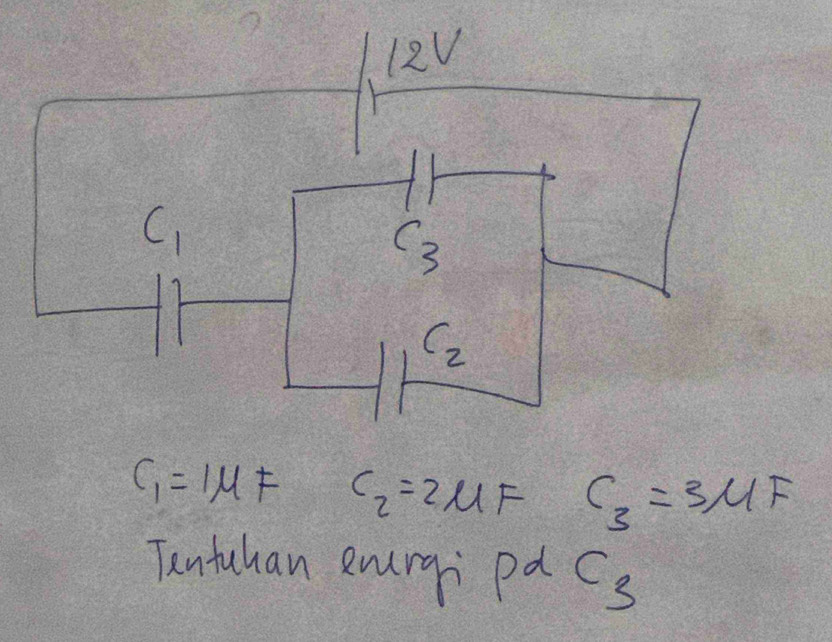 12V
C₁
C₃
C₂
C₁ = 1 μF C₂ = 2 μF C₃ = 3 μF
Tentukan energi pd C₃